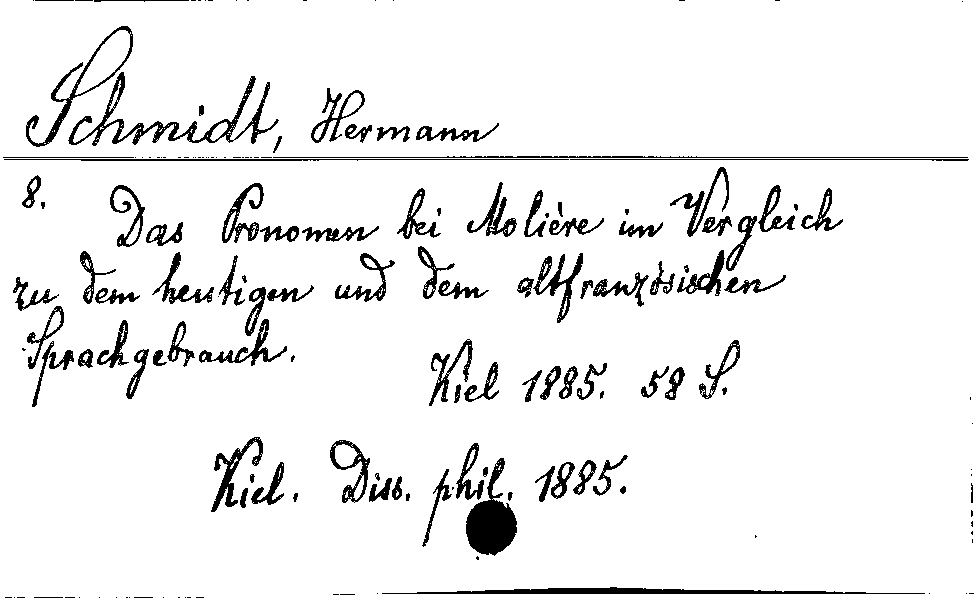 Schmidt, Hermann
8. Das Pronomen bei Molière im Vergleich
zu dem heutigen und dem altfranzösischen
Sprachgebrauch.
Kiel 1885. 58 S.
Kiel. Diss. phil. 1885.